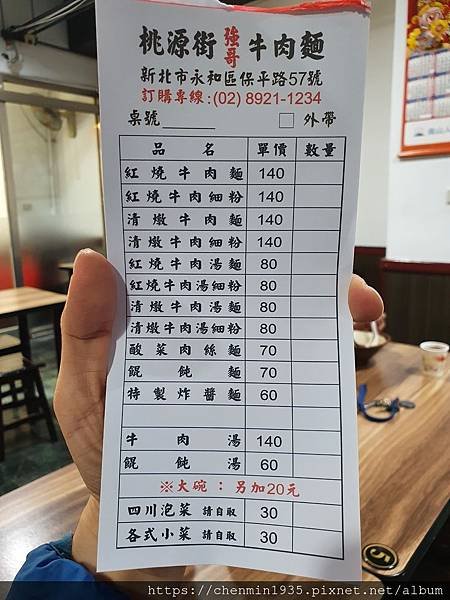 桃源街 強哥 牛肉麵
新北市永和區保平路57號
訂購專線:(02) 8921-1234
桌號 外帶
品名 單價 數量
紅燒牛肉麵 140
紅燒牛肉細粉 140
清燉牛肉麵 140
清燉牛肉細粉 140
紅燒牛肉湯麵 80
紅燒牛肉湯細粉 80
清燉牛肉湯麵 80
清燉牛肉湯細粉 80
酸菜肉絲麵 70
餛飩麵 70
特製炸醬麵 60
牛肉湯 140
餛飩湯 60
※大碗：另加20元
四川泡菜 請自取 30
各式小菜 請自取 30
https://chenmin1935.pixnet.net/album